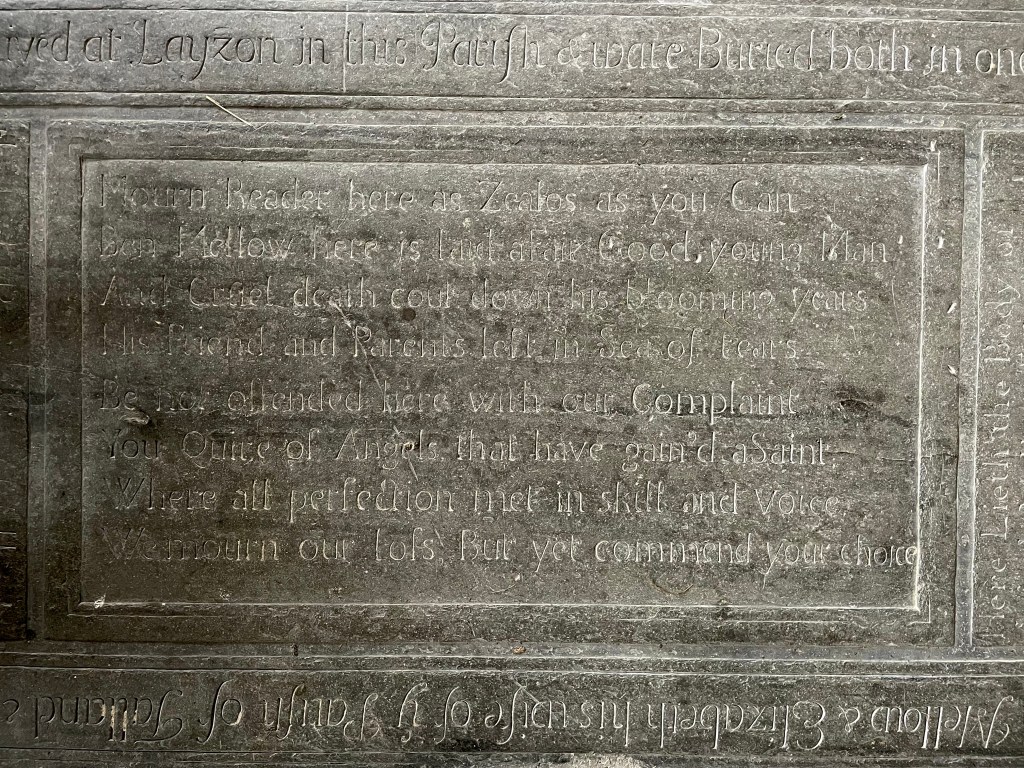 ived at Layzon in this Pariſh & ware Buried both in one
Mourn Reader here as Zealos as you Can
Ben Mellow here is laid a fair Good young Man
And Cruel death cout down his blooming years
His Friend and Parents left in Sea of tears
Be not offended here with our Complaint
You Quire of Angels that have gain'd a Saint,
Where all perfection met in skill and voice
We mourn our loſs, But yet commend your choice
Here Lieth the Body of
Mellow & Elizabeth his wife of ẏ Pariſh of Talland &